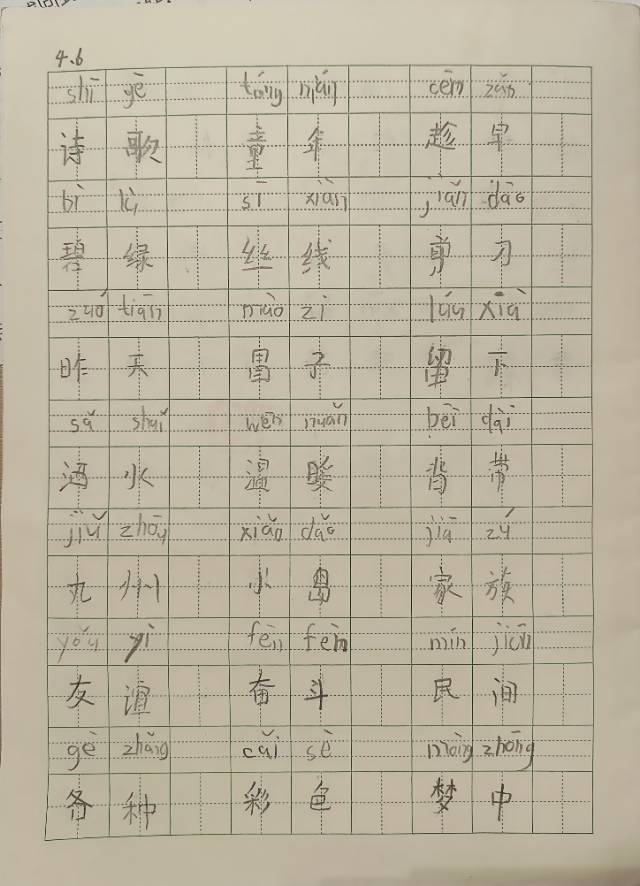 4.6
shī gē tóng nián cèn zǎn
诗 歌 童 年 趁 早
bì lǜ sī xiàn jiǎn dāo
碧 绿 丝 线 剪 刀
zuó tiān mào zi liú xià
昨 天 冒 子 留 下
sǎ shuǐ wēn nuǎn bēi dài
洒 水 温 暖 背 带
jiǔ zhōu xiǎo dǎo jiā zú
九 州 小 岛 家 族
yǒu yì fèn fèm mín jiān
友 谊 奋 斗 民 间
gè zhǎng cǎi sè mèng zhōng
各 种 彩 色 梦 中